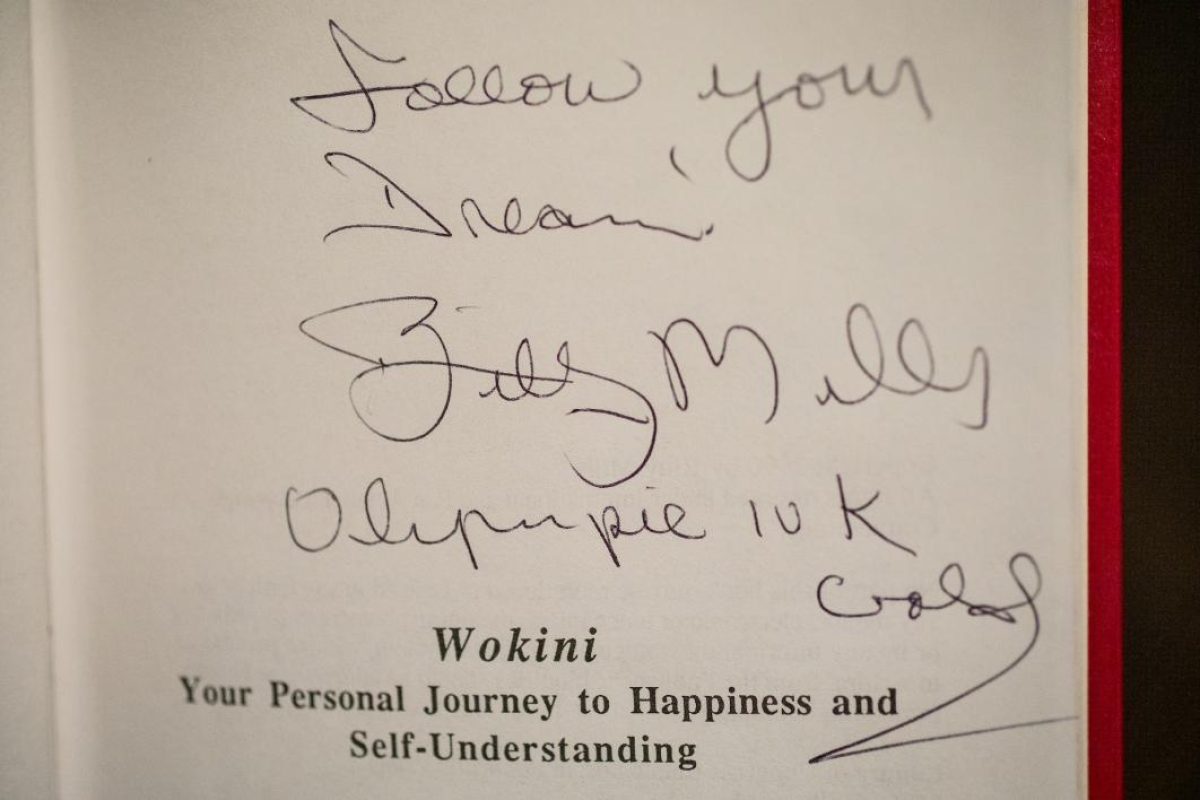 Follow your
Dream.
Billy Mills
Olympic 10K
Gold
Wokini
Your Personal Journey to Happiness and
Self-Understanding